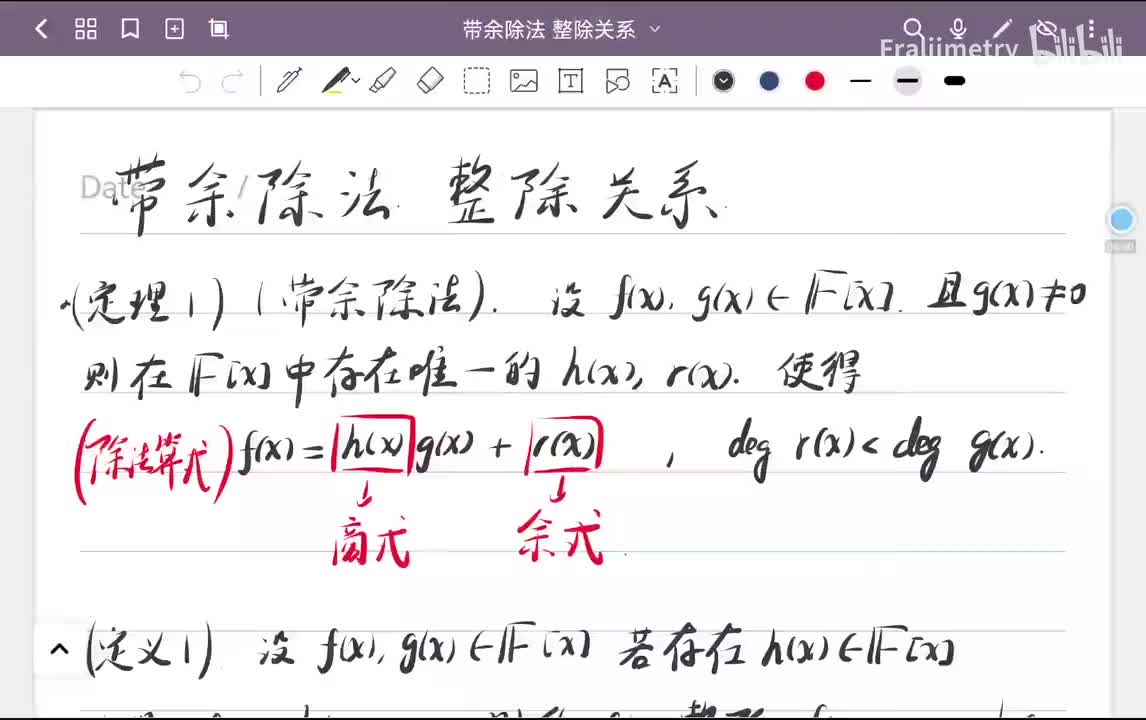 带余除法 整除关系
Fraljimetry bilibili
T A
Date /
带余除法 整除关系
(定理1) (带余除法). 设 f(x), g(x) ∈ F[x]. 且g(x)≠0
则在 F[x] 中存在唯一的 h(x), r(x). 使得
(除法算式) f(x) = h(x) g(x) + r(x) , deg r(x) < deg g(x).
商式 余式
(定义1) 设 f(x), g(x) ∈ F[x] 若存在 h(x) ∈ F[x]